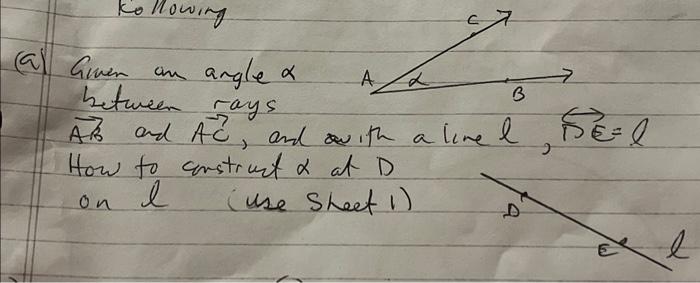 Following
(a) Given an angle α
between rays
AB and AC, and with a line l, DE = l
How to construct α at D
on l (use Sheet 1)
C
A α
B
D
E l